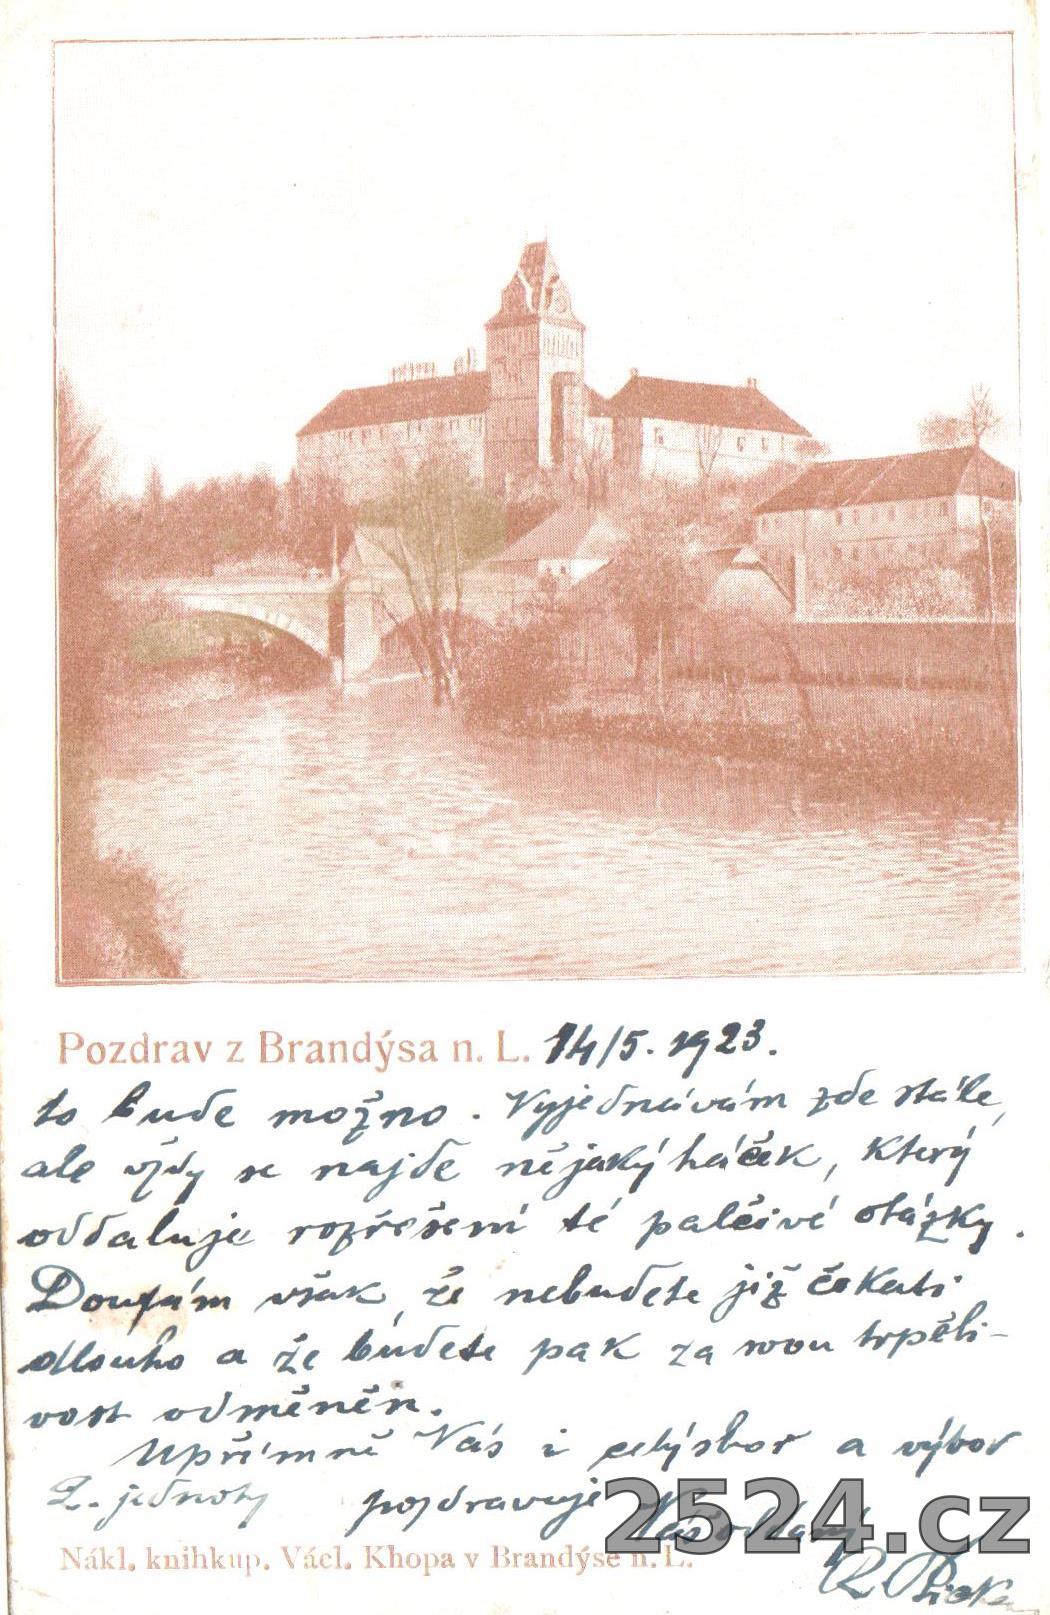 Pozdrav z Brandýsa n. L. 14/5. 1923.
to bude možno. Vyjednávám zde stále,
ale vždy se najde nějaký háček, který
oddaluje rozřešení té palčivé otázky.
Doufám však, že nebudete již čekati
dlouho a že budete pak za svou trpěli-
vost odměněn.
Upřímně Vás i celý sbor a výbor
L. jednoty pozdravuje Váš oddaný
2524.cz
Nákl. knihkup. Václ. Khopa v Brandýse n. L.
R.